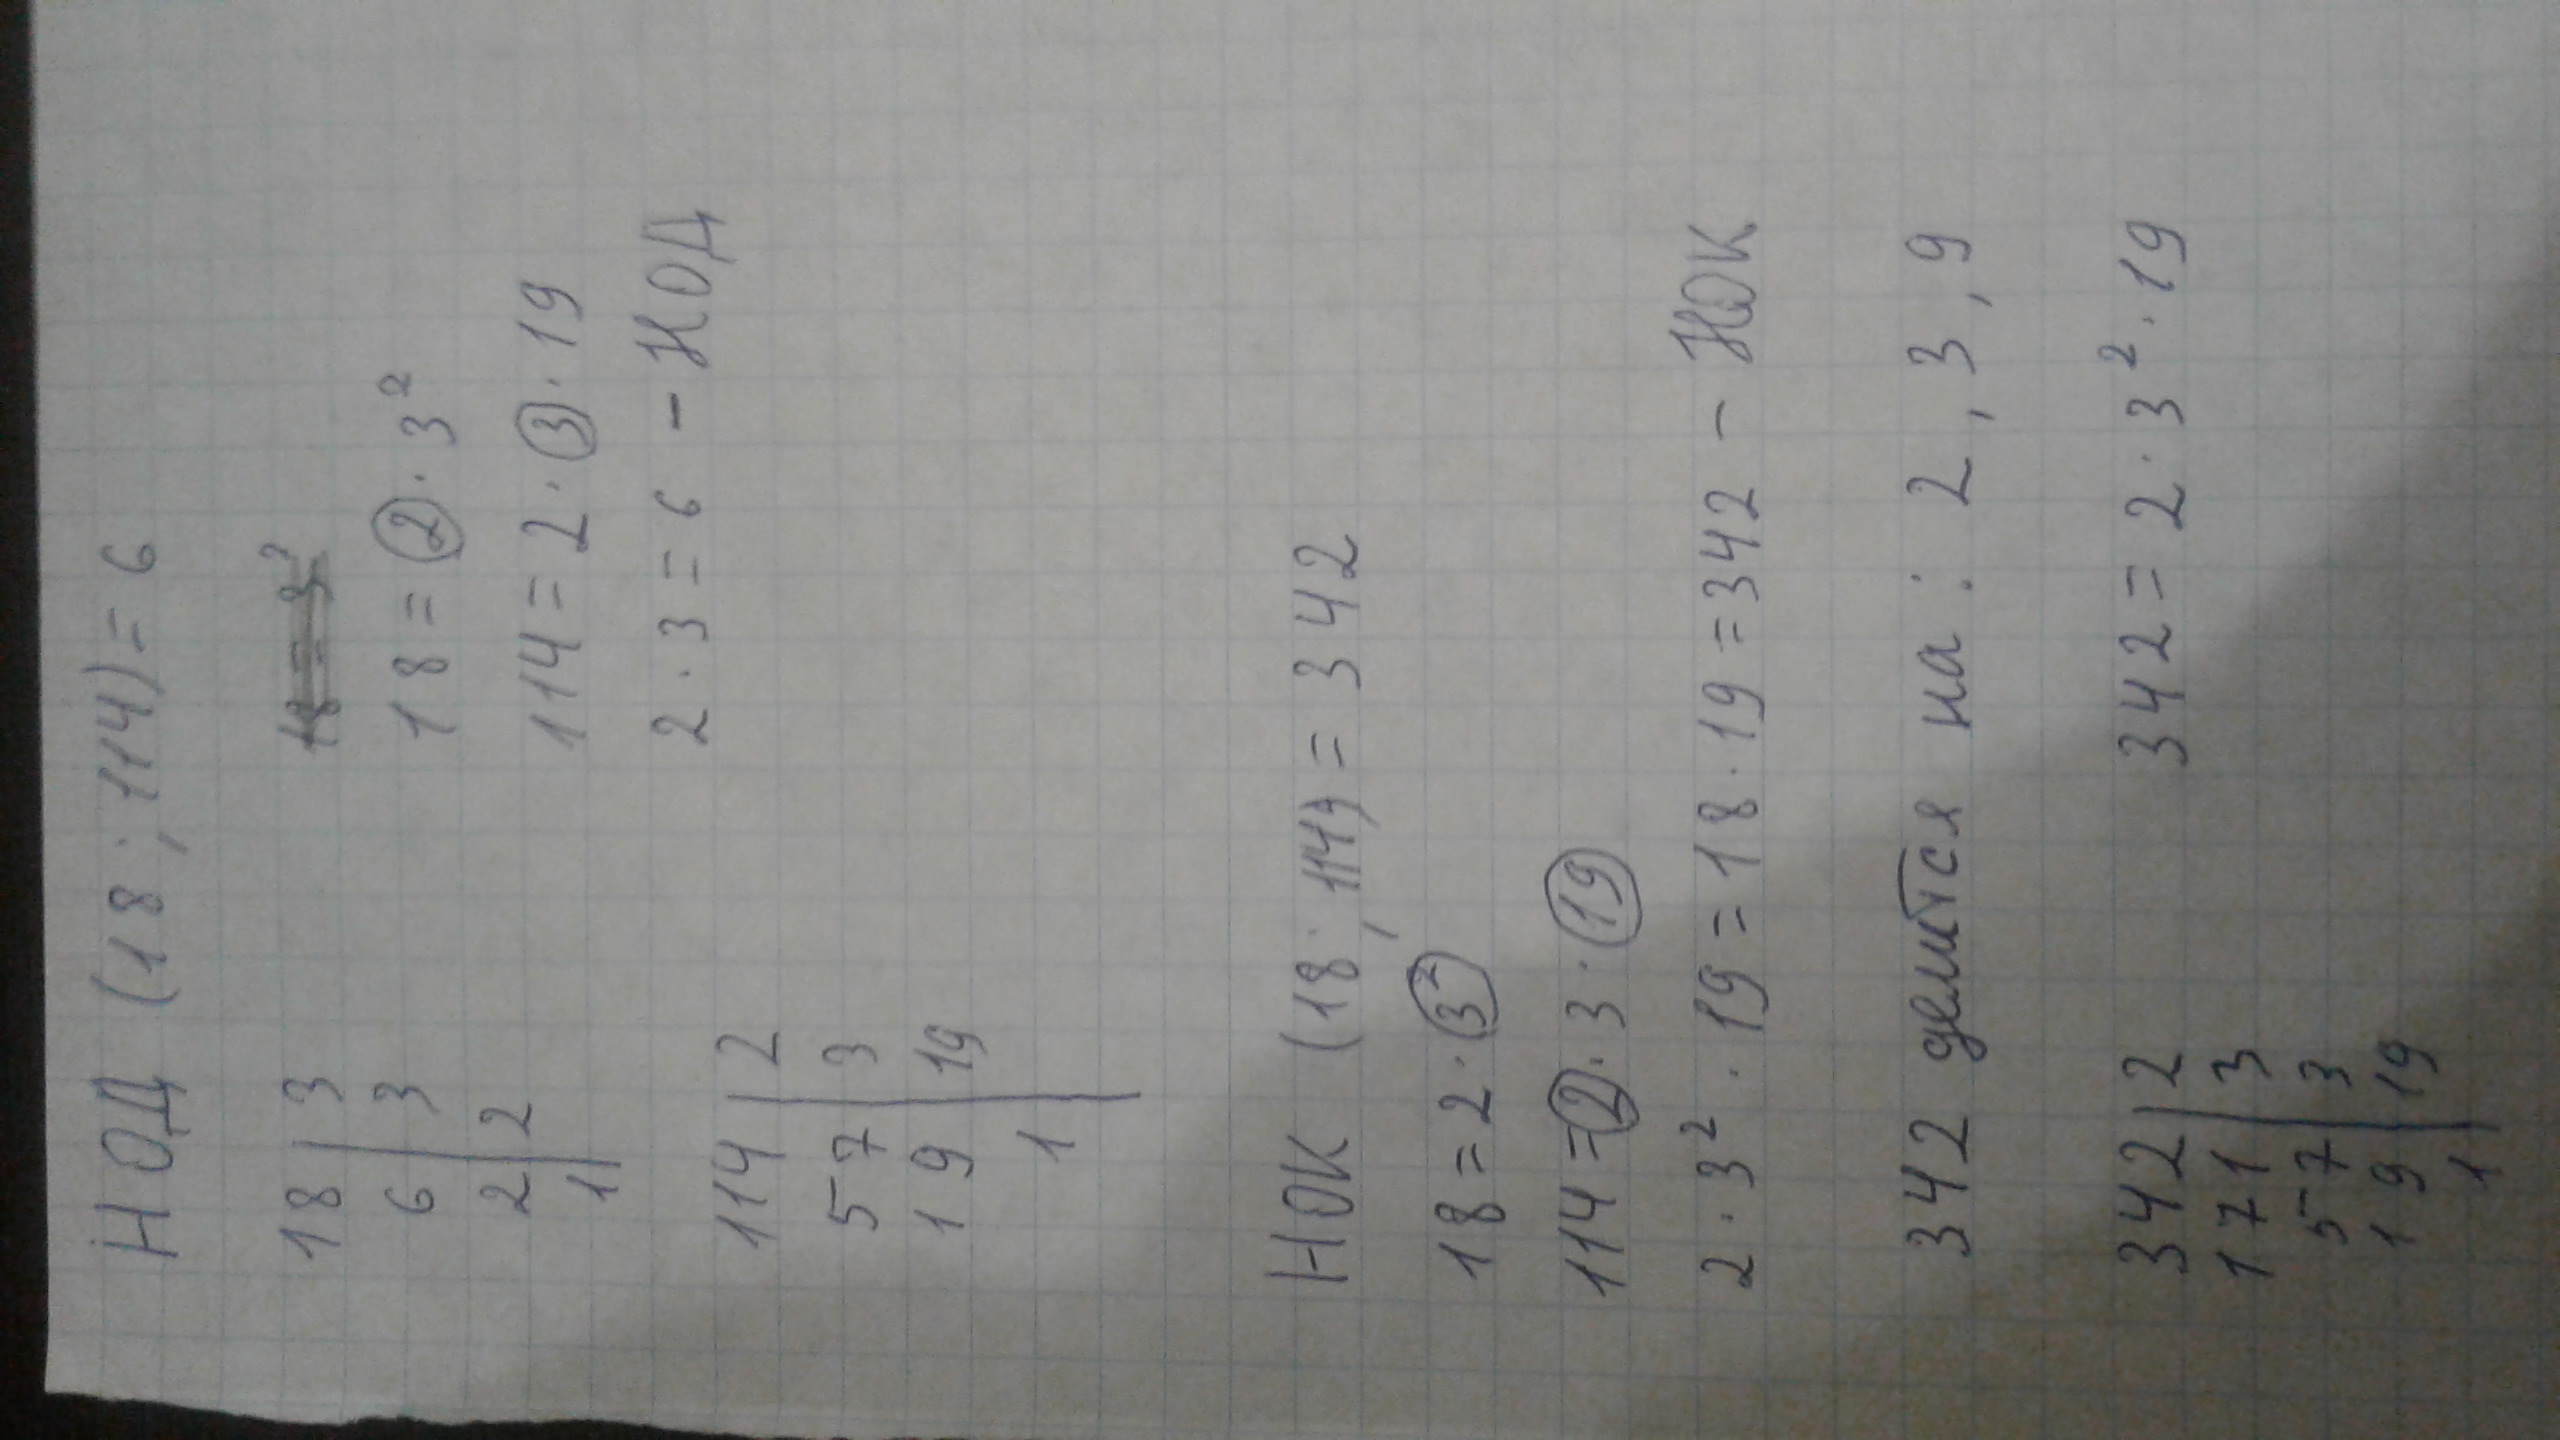 НОД (18; 114) = 6
18 | 3
6 | 3
2 | 2
1 |
18 = 3²
18 = 2 · 3²
114 = 2 · 3 · 19
2 · 3 = 6 - НОД
114 | 2
57 | 3
19 | 19
1 |
НОК (18; 114) = 342
18 = 2 · 3²
114 = 2 · 3 · 19
2 · 3² · 19 = 18 · 19 = 342 - НОК
342 делится на: 2, 3, 9
342 | 2
171 | 3
57 | 3
19 | 19
1 |
342 = 2 · 3² · 19